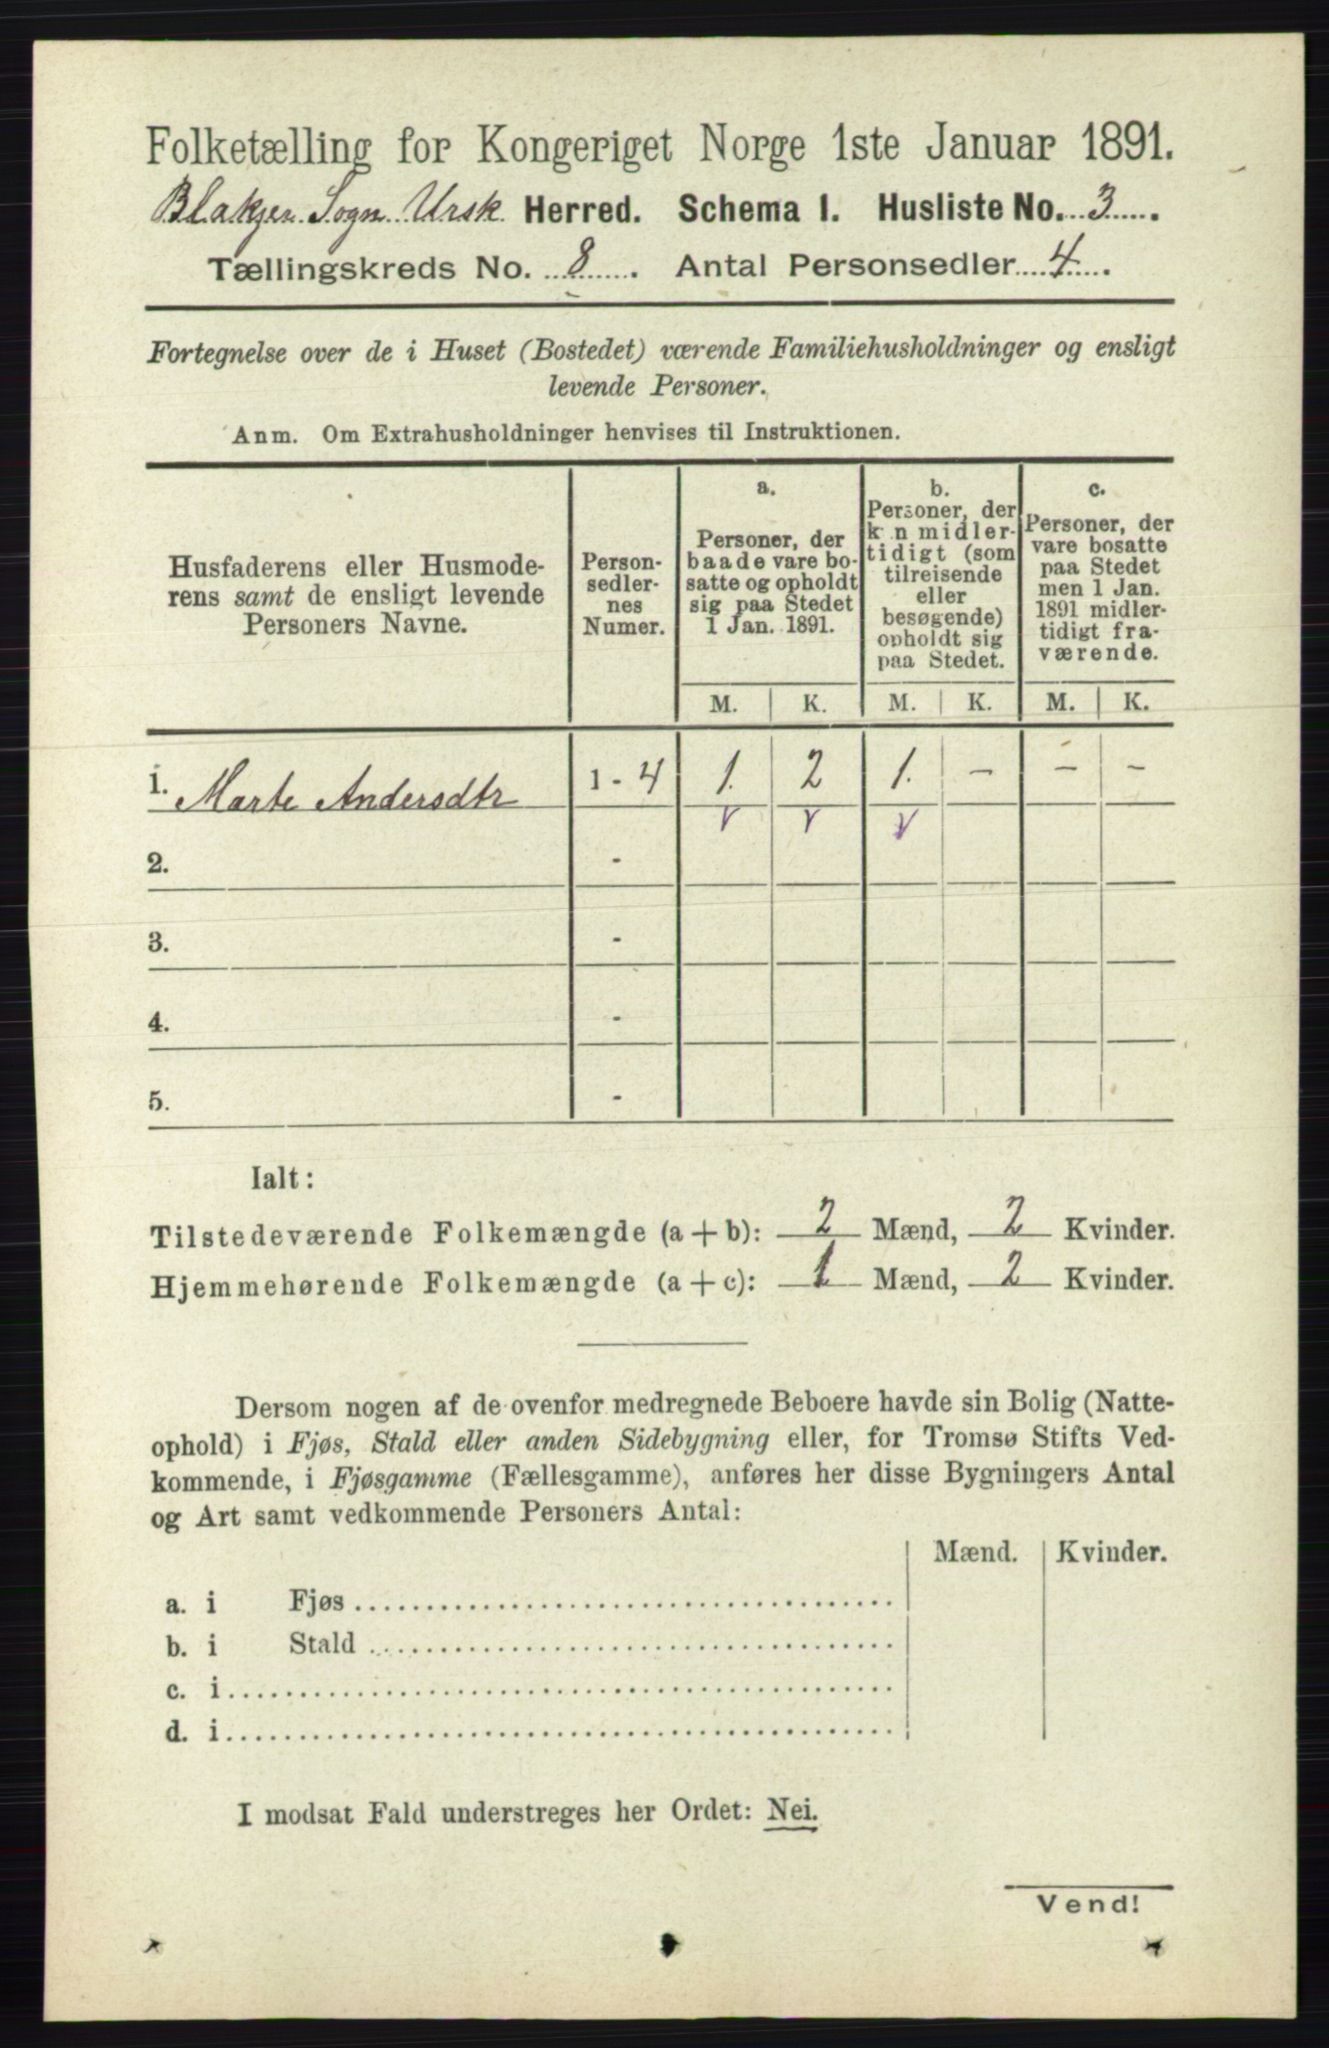 Folketælling for Kongeriget Norge 1ste Januar 1891.
Blakjer Sogn Ursk Herred. Schema 1. Husliste No. 3.
Tællingskreds No. 8. Antal Personsedler 4.
Fortegnelse over de i Huset (Bostedet) værende Familiehusholdninger og ensligt
levende Personer.
Anm. Om Extrahusholdninger henvises til Instruktionen.
Husfaderens eller Husmode-
rens samt de ensligt levende
Personers Navne.
Person-
sedler-
nes
Numer.
a.
Personer, der
baade vare bo-
satte og opholdt
sig paa Stedet
1 Jan. 1891.
b.
Personer, der
kun midler-
tidigt (som
tilreisende
eller
besøgende)
opholdt sig
paa Stedet.
c.
Personer, der
vare bosatte
paa Stedet
men 1 Jan.
1891 midler-
tidigt fra-
værende.
M. K. M. K. M. K.
1. Marte Andersdtr 1 - 4 1. 2 1. - - -
2. -
3. -
4. -
5. -
Ialt:
Tilstedeværende Folkemængde (a + b): 2 Mænd, 2 Kvinder.
Hjemmehørende Folkemængde (a + c): 1 Mænd, 2 Kvinder.
Dersom nogen af de ovenfor medregnede Beboere havde sin Bolig (Natte-
ophold) i Fjøs, Stald eller anden Sidebygning eller, for Tromsø Stifts Ved-
kommende, i Fjøsgamme (Fællesgamme), anføres her disse Bygningers Antal
og Art samt vedkommende Personers Antal:
Mænd. Kvinder.
a. i Fjøs
b. i Stald
c. i
d. i
I modsat Fald understreges her Ordet: Nei.
Vend!